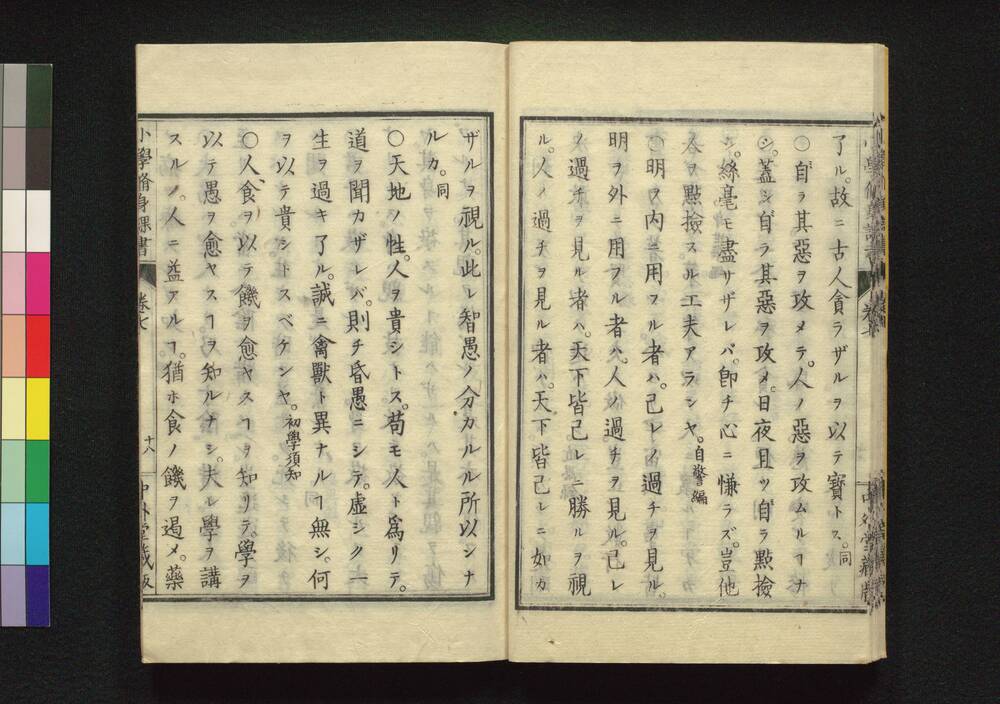 了ル。故ニ古人貪ラザルヲ以テ寳トス。同
○自ラ其惡ヲ攻メテ。人ノ惡ヲ攻ムルヿナ
シ。蓋シ自ラ其惡ヲ攻メ。日夜且ツ自ラ點檢
シ。絲毫モ盡サザレバ。卽チ心ニ慊ラズ。豈他
人ヲ點檢スル工夫アランヤ。自警編
○明ヲ内ニ用フル者ハ。己レノ過チヲ見ル。
明ヲ外ニ用フル者ハ。人ノ過チヲ見ル。己レ
ノ過チヲ見ル者ハ。天下皆己レニ勝ルヲ視
ル。人ノ過チヲ見ル者ハ。天下皆己レニ如カ
ザルヲ視ル。此レ智愚ノ分カルル所以シナ
ルカ。同
○天地ノ性。人ヲ貴シトス。苟モ人ト爲リテ。
道ヲ聞カザレバ。則チ昏愚ニシテ。虛シク一
生ヲ過キ了ル。誠ニ禽獸ト異ナルヿ無シ。何
ヲ以テ貴シトスベケンヤ。初學須知
○人食ヲ以テ饑ヲ愈ヤスヿヲ知リテ。學ヲ
以テ愚ヲ愈ヤスヿヲ知ルナシ。夫レ學ヲ講
スルノ。人ニ益アルヿ。猶ホ食ノ饑ヲ遏メ。藥
小學脩身課書 卷七 十八 中外堂藏版